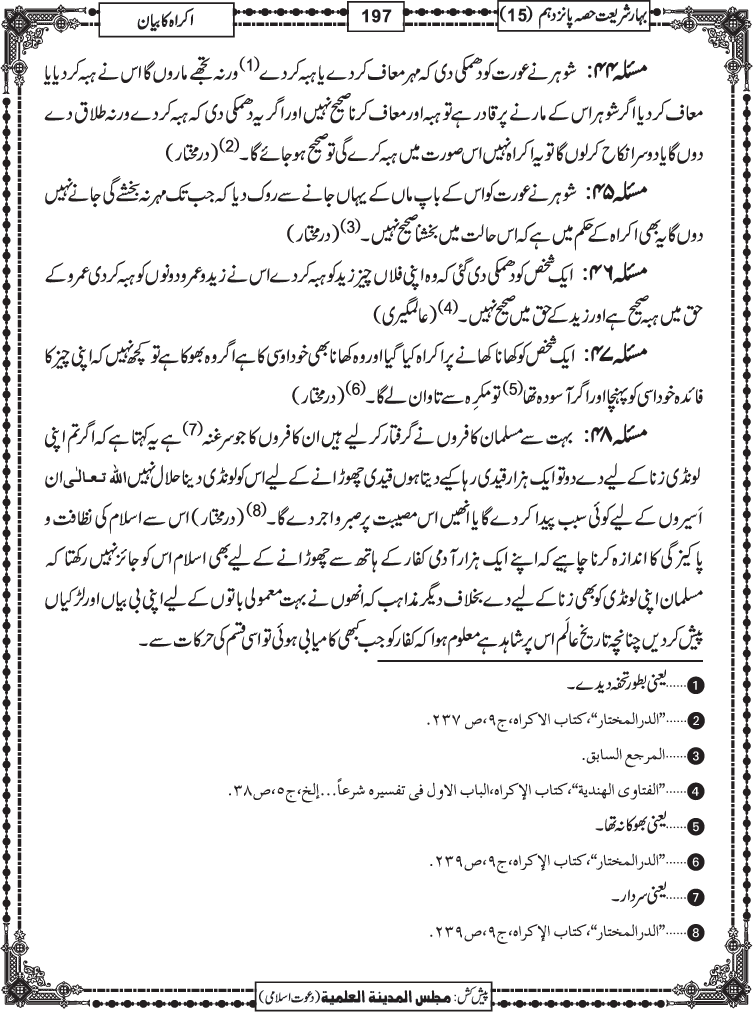 بہارِ شریعت حصہ پانزدہم (15)
197
اکراہ کا بیان
مسئلہ ۴۴: شوہر نے عورت کو دھمکی دی کہ مہر معاف کردے یا ہبہ کردے(1) ورنہ تجھے ماروں گا اس نے ہبہ کردیا یا
معاف کردیا اگر شوہر اس کے مارنے پر قادر ہے تو ہبہ اور معاف کرنا صحیح نہیں اور اگر یہ دھمکی دی کہ ہبہ کردے ورنہ طلاق دے
دوں گا یا دوسرا نکاح کرلوں گا تو یہ اکراہ نہیں اس صورت میں ہبہ کرے گی تو صحیح ہوجائے گا۔(2) (درمختار)
مسئلہ ۴۵: شوہر نے عورت کو اس کے باپ ماں کے یہاں جانے سے روک دیا کہ جب تک مہر نہ بخشے گی جانے نہیں
دوں گا یہ بھی اکراہ کے حکم میں ہے کہ اس حالت میں بخشنا صحیح نہیں۔(3) (درمختار)
مسئلہ ۴۶: ایک شخص کو دھمکی دی گئی کہ وہ اپنی فلاں چیز زید کو ہبہ کردے اس نے زید و عمرو دونوں کو ہبہ کردی عمرو کے
حق میں ہبہ صحیح ہے اور زید کے حق میں صحیح نہیں۔(4) (عالمگیری)
مسئلہ ۴۷: ایک شخص کو کھانا کھانے پر اکراہ کیا گیا اور وہ کھانا بھی خود اسی کا ہے اگر وہ بھوکا ہے تو کچھ نہیں کہ اپنی چیز کا
فائدہ خود اسی کو پہنچا اور اگر آسودہ تھا(5) تو مکرِہ سے تاوان لے گا۔(6) (درمختار)
مسئلہ ۴۸: بہت سے مسلمان کافروں نے گرفتار کرلیے ہیں ان کافروں کا جو سرغنہ(7) ہے یہ کہتا ہے کہ اگر تم اپنی
لونڈی زنا کے لیے دے دو تو ایک ہزار قیدی رہا کیے دیتا ہوں قیدی چھوڑانے کے لیے اس کو لونڈی دینا حلال نہیں اللہ تعالٰی ان
اَسیروں کے لیے کوئی سبب پیدا کردے گا یا انھیں اس مصیبت پر صبر و اجر دے گا۔(8) (درمختار) اس سے اسلام کی نظافت و
پاکیزگی کا اندازہ کرنا چاہیے کہ اپنے ایک ہزار آدمی کفار کے ہاتھ سے چھوڑانے کے لیے بھی اسلام اس کو جائز نہیں رکھتا کہ
مسلمان اپنی لونڈی کو بھی زنا کے لیے دے بخلاف دیگر مذاہب کہ انھوں نے بہت معمولی باتوں کے لیے اپنی بی بیاں اور لڑکیاں
پیش کردیں چنانچہ تاریخ عالَم اس پر شاہد ہے معلوم ہوا کہ کفار کو جب کبھی کامیابی ہوئی تو اسی قسم کی حرکات سے۔
1......یعنی بطور تحفہ دیدے۔
2......"الدرالمختار"، کتاب الاکراہ، ج٩، ص ٢٣٧.
3......المرجع السابق.
4......"الفتاوی الهندية"، کتاب الإکراہ، الباب الاول فی تفسیرہ شرعاً...إلخ، ج٥، ص٣٨.
5......یعنی بھوکا نہ تھا۔
6......"الدرالمختار"، کتاب الإکراہ، ج٩، ص٢٣٩.
7......یعنی سردار۔
8......"الدرالمختار"، کتاب الإکراہ، ج٩، ص٢٣٩.
پیش کش: مجلس المدینة العلمیة (دعوت اسلامی)